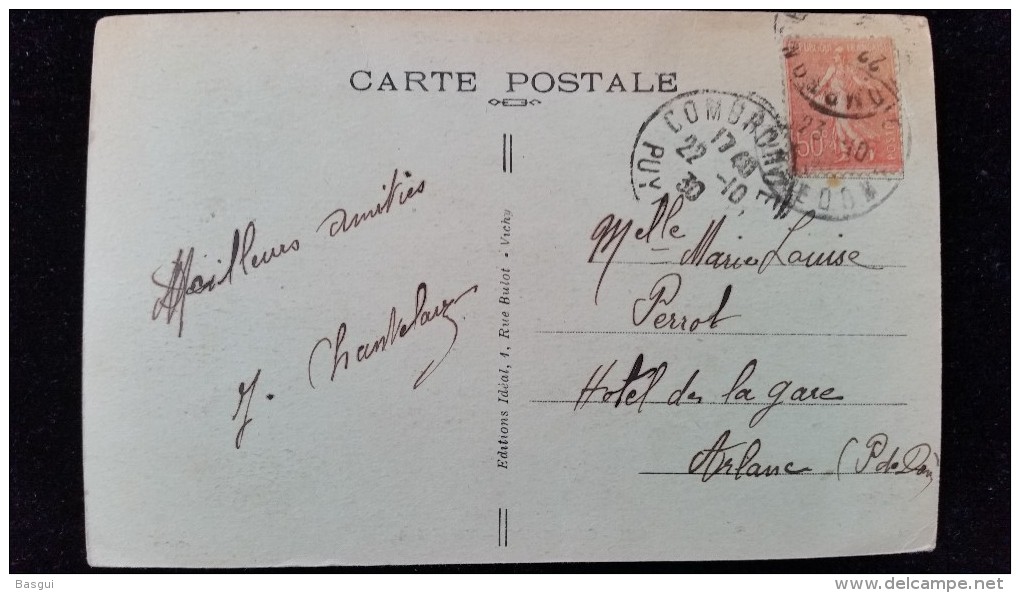 CARTE POSTALE
COMBRONDE
17 40
22 -10
30
PUY
50
Meilleurs amitiés
Editions Idéal, 1, Rue Bulot - Vichy
Melle Marie Louise
Perrot
Hotel de la gare
Arlanc (P de Dôm
Basgui
www.delcampe.net